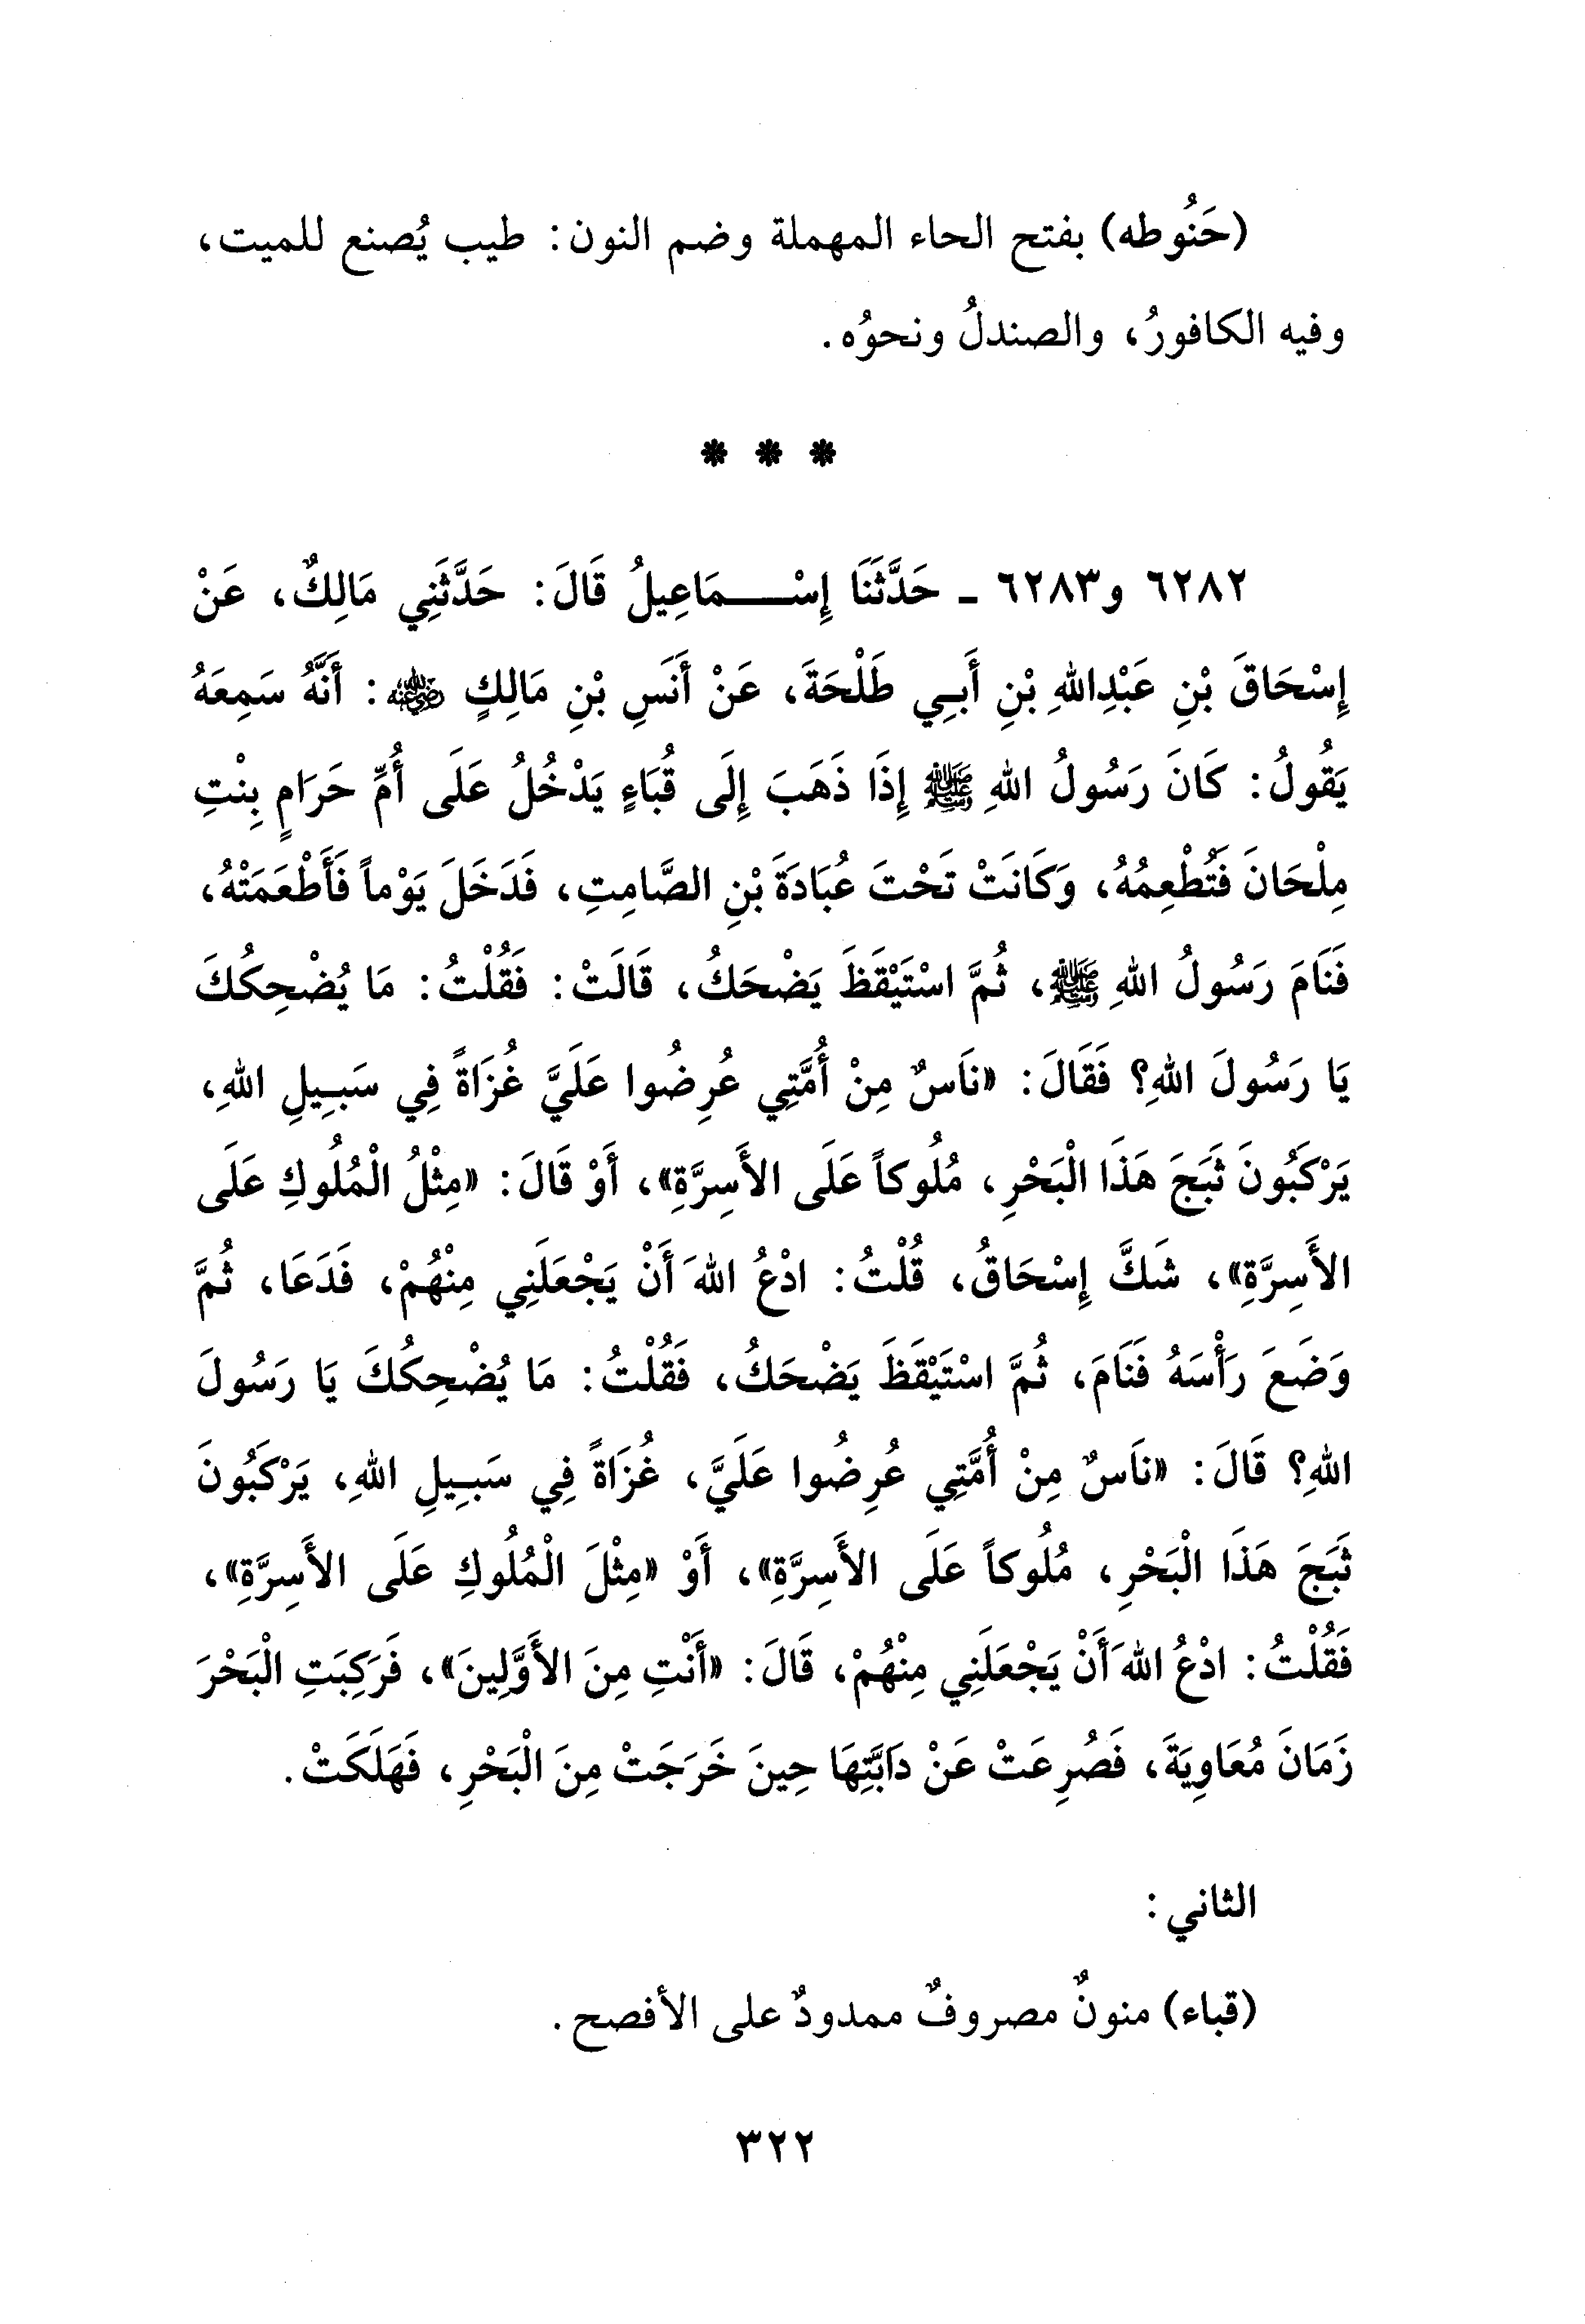 (حَنُوطه) بفتح الحاء المهملة وضم النون: طيب يُصنع للميت،
وفيه الكافورُ، والصندلُ ونحوُه.
* * *
٦٢٨٢ و٦٢٨٣ ـ حَدَّثَنَا إِسْـمَاعِيلُ قَالَ: حَدَّثَنِي مَالِكٌ، عَنْ
إِسْحَاقَ بْنِ عَبْدِاللهِ بْنِ أَبِي طَلْحَةَ، عَنْ أَنَسِ بْنِ مَالِكٍ رضي الله عنه: أَنَّهُ سَمِعَهُ
يَقُولُ: كَانَ رَسُولُ اللهِ ﷺ إِذَا ذَهَبَ إِلَى قُبَاءٍ يَدْخُلُ عَلَى أُمِّ حَرَامٍ بِنْتِ
مِلْحَانَ فَتُطْعِمُهُ، وَكَانَتْ تَحْتَ عُبَادَةَ بْنِ الصَّامِتِ، فَدَخَلَ يَوْماً فَأَطْعَمَتْهُ،
فَنَامَ رَسُولُ اللهِ ﷺ، ثُمَّ اسْتَيْقَظَ يَضْحَكُ، قَالَتْ: فَقُلْتُ: مَا يُضْحِكُكَ
يَا رَسُولَ اللهِ؟ فَقَالَ: «نَاسٌ مِنْ أُمَّتِي عُرِضُوا عَلَيَّ غُزَاةً فِي سَبِيلِ اللهِ،
يَرْكَبُونَ ثَبَجَ هَذَا الْبَحْرِ، مُلُوكاً عَلَى الأَسِرَّةِ»، أَوْ قَالَ: «مِثْلُ الْمُلُوكِ عَلَى
الأَسِرَّةِ»، شَكَّ إِسْحَاقُ، قُلْتُ: ادْعُ اللهَ أَنْ يَجْعَلَنِي مِنْهُمْ، فَدَعَا، ثُمَّ
وَضَعَ رَأْسَهُ فَنَامَ، ثُمَّ اسْتَيْقَظَ يَضْحَكُ، فَقُلْتُ: مَا يُضْحِكُكَ يَا رَسُولَ
اللهِ؟ قَالَ: «نَاسٌ مِنْ أُمَّتِي عُرِضُوا عَلَيَّ، غُزَاةً فِي سَبِيلِ اللهِ، يَرْكَبُونَ
ثَبَجَ هَذَا الْبَحْرِ، مُلُوكاً عَلَى الأَسِرَّةِ»، أَوْ «مِثْلَ الْمُلُوكِ عَلَى الأَسِرَّةِ»،
فَقُلْتُ: ادْعُ اللهَ أَنْ يَجْعَلَنِي مِنْهُمْ، قَالَ: «أَنْتِ مِنَ الأَوَّلِينَ»، فَرَكِبَتِ الْبَحْرَ
زَمَانَ مُعَاوِيَةَ، فَصُرِعَتْ عَنْ دَابَّتِهَا حِينَ خَرَجَتْ مِنَ الْبَحْرِ، فَهَلَكَتْ.
الثاني:
(قباء) منونٌ مصروفٌ ممدودٌ على الأفصح.
٣٢٢